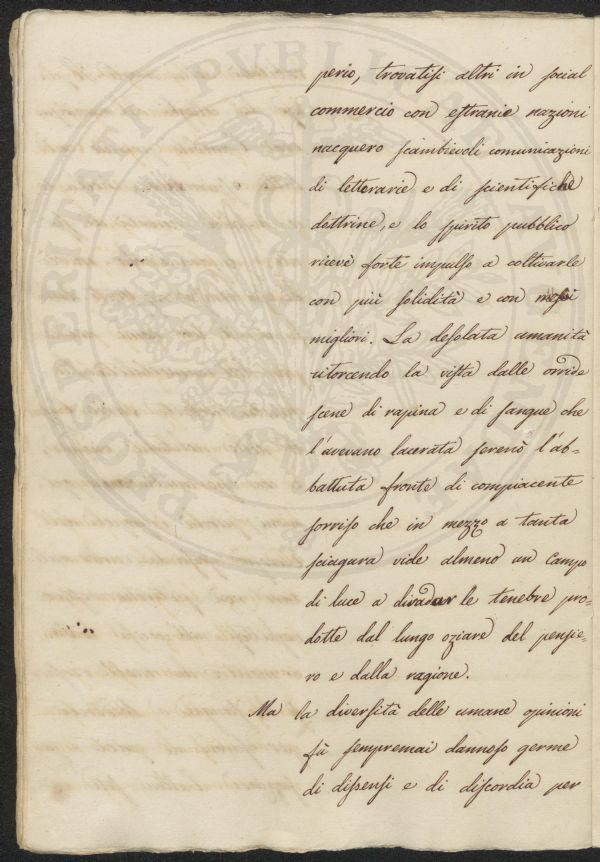 perio, trovatisi altri in social
commercio con estranie nazioni
nacquero scambievoli comunicazioni
di letterarie e di scientifiche
dottrine, e lo spirito pubblico
ricevè forte impulso a coltivarle
con più solidità e con mezzi
migliori. La desolata umanità
ritorcendo la vista dalle orride
scene di rapina e di sangue che
l'avevano lacerata serenò l'ab=
battuta fronte di compiacente
sorriso che in mezzo a tanta
sciagura vide almeno un Campo
di luce a diradar le tenebre pro=
dotte dal lungo oziare del pensie=
ro e dalla ragione.
Ma la diversità delle umane opinioni
fù sempremai dannoso germe
di dissensi e di discordia per